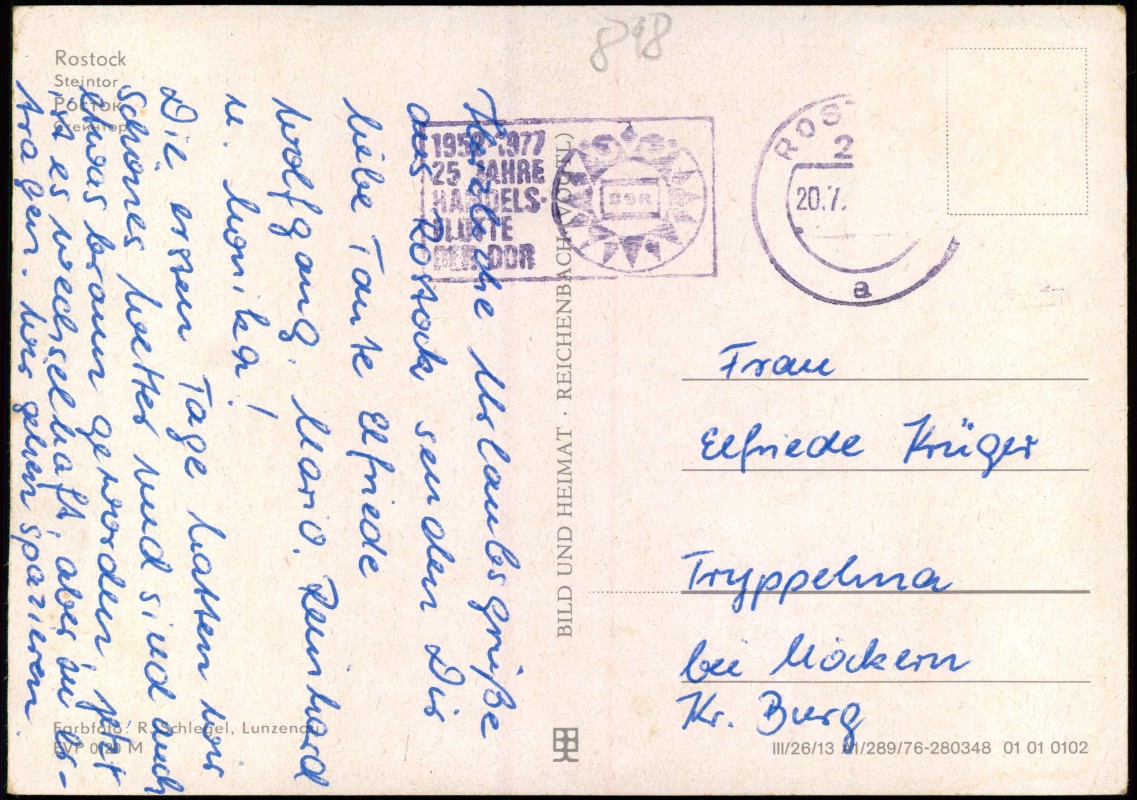 Rostock
Steintor
РОСТОК
Farbfoto: R. Schlegel, Lunzenau
EVP 0,20 M
Herzliche Urlaubsgrüße
aus Rostock senden Dir
liebe Tante Elfriede
Wolfgang, Mario, Reinhard
u. Monika!
Die ersten Tage hatten wir
schönes Wetter und sind auch
etwas braun geworden, jetzt
ist es wechselhaft, aber zu er-
tragen. Wir gehen spazieren.
898
1952-1977
25 JAHRE
HANDELS-
FLOTTE
DER DDR
DSR
ROST
2
20.7.
a
BILD UND HEIMAT · REICHENBACH (VOGTL)
Frau
Elfriede Krüger
Tryppehna
bei Möckern
Kr. Burg
III/26/13 A1/289/76-280348 01 01 0102